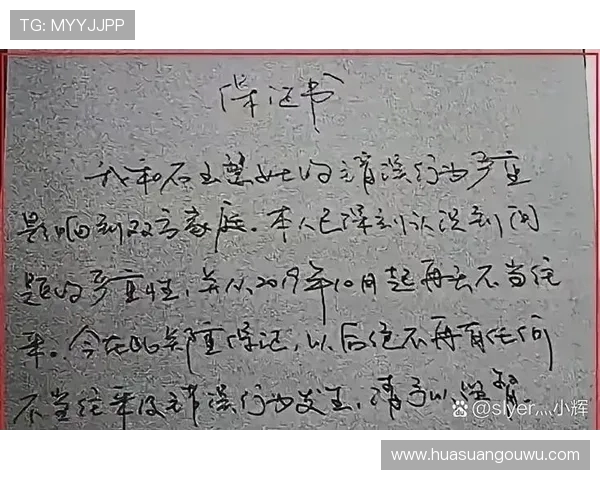 TG: MYYJJPP
保证书
我和石玉慧女士的错误行为严重
影响到双方家庭。本人已深刻认识到问
题的严重性，并从2019年10月起再无不当往
来。今在此郑重保证，以后绝不再有任何
不当往来及错误行为发生，请予以监督。
@slyer灬小辉
www.huasuangouwu.com